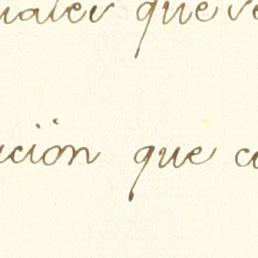 uales que ve
ución que co